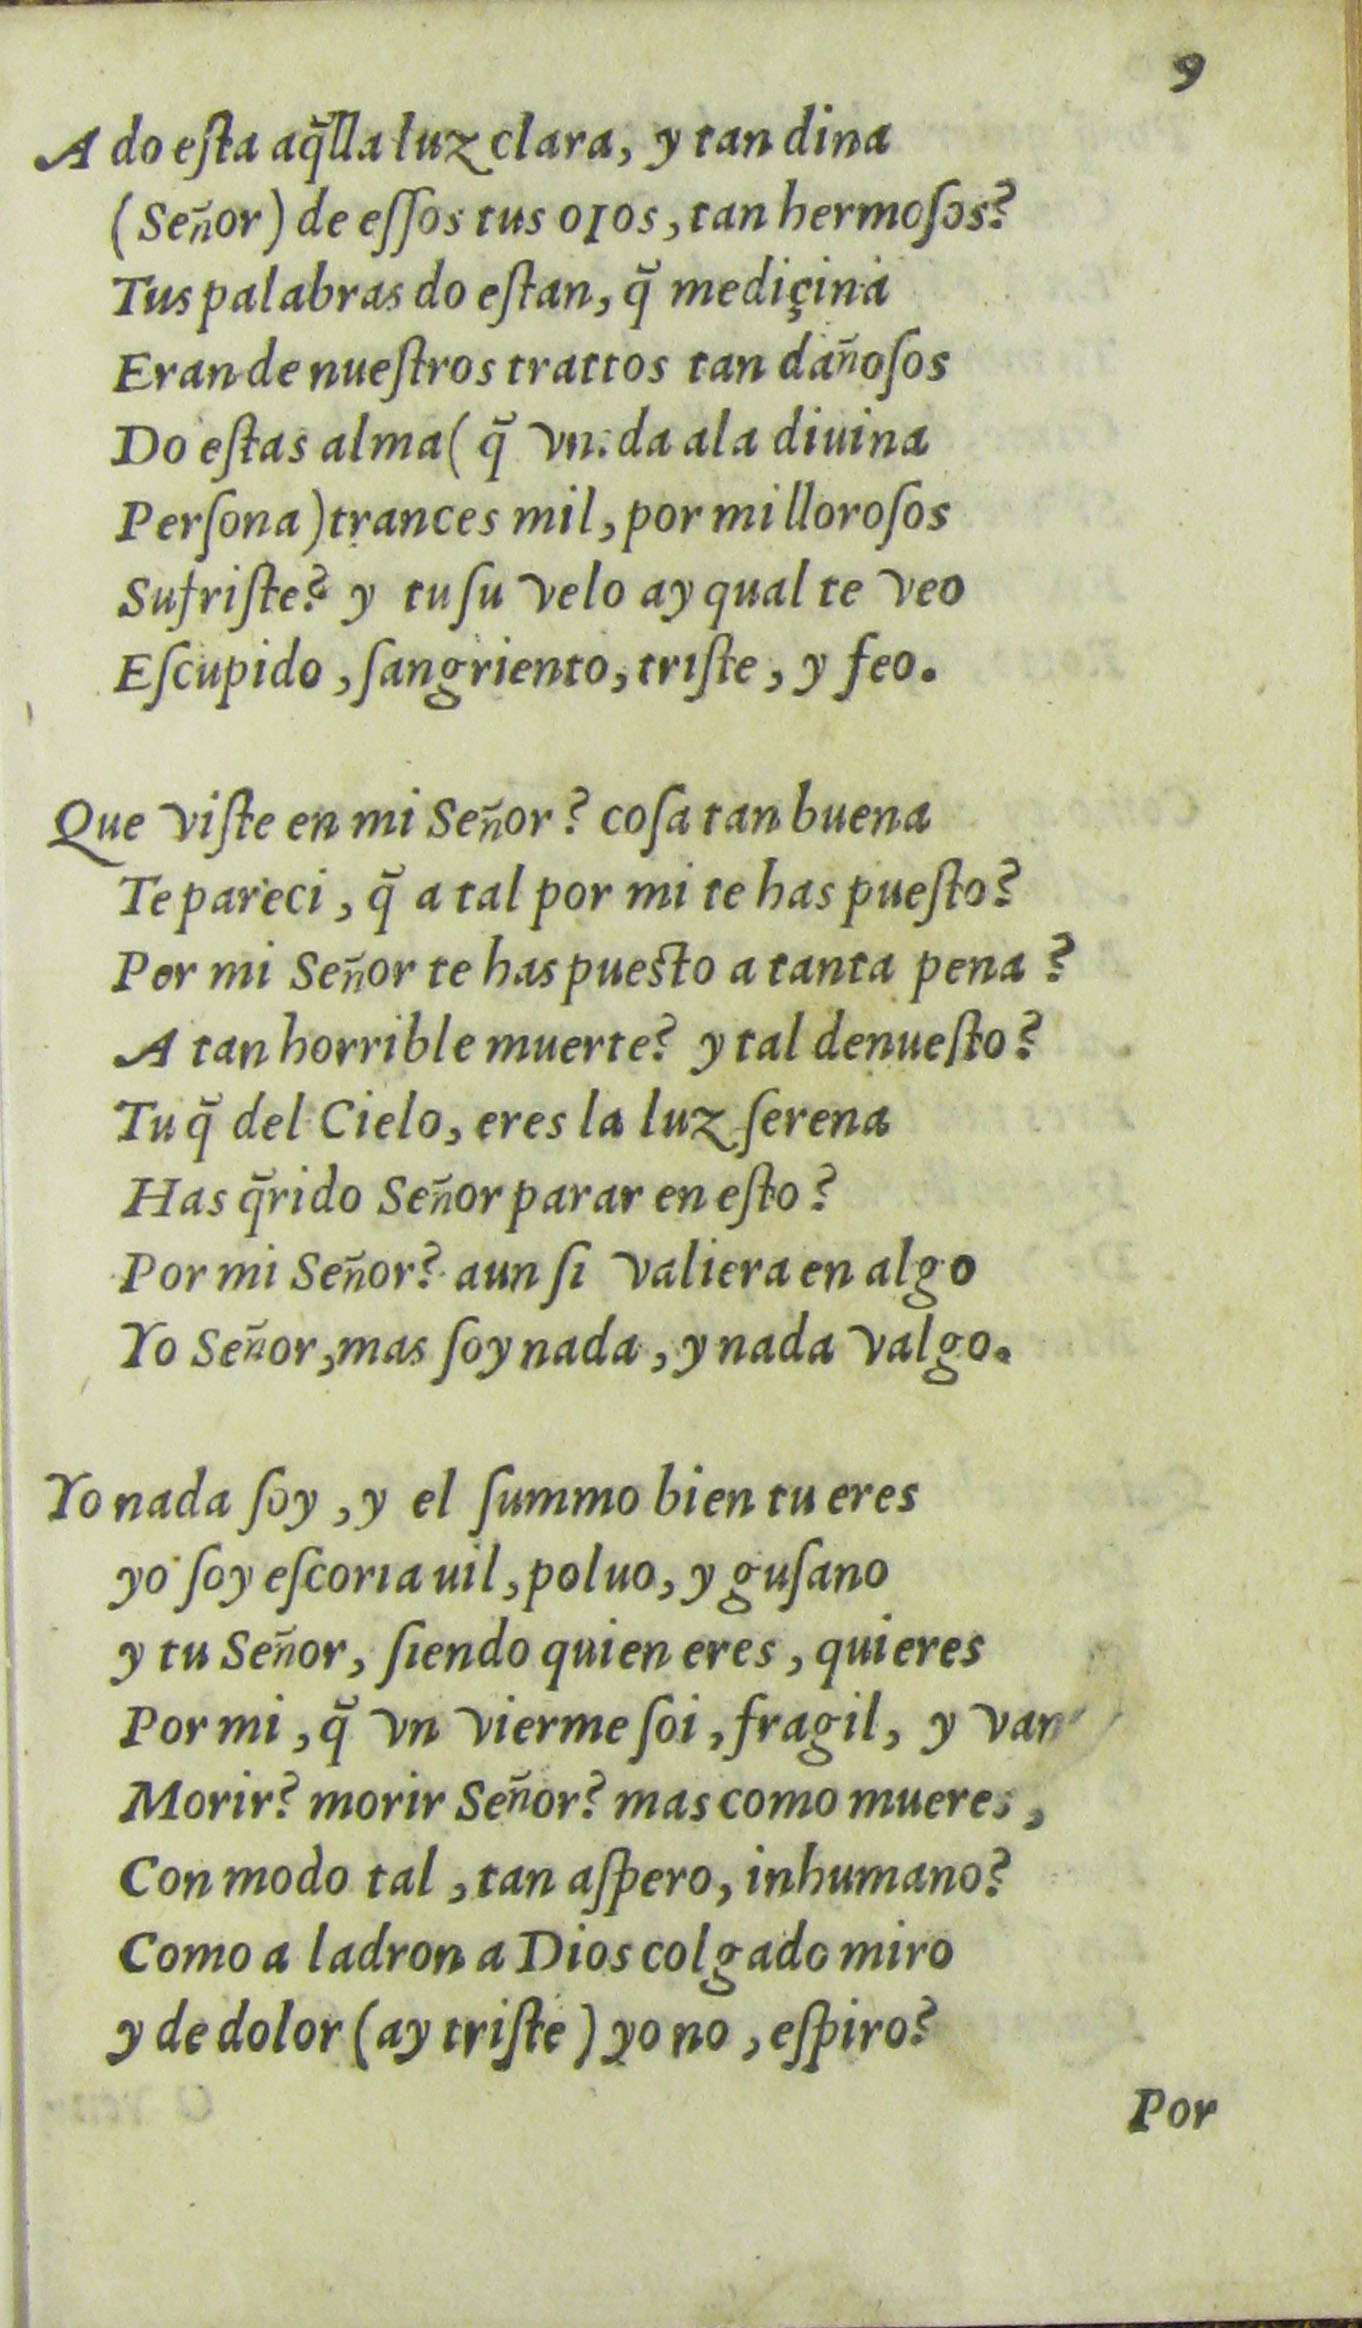 9
A do eſta aq̃lla luz clara, y tan dina
(Señor) de eſſos tus oıos, tan hermoſos?
Tus palabras do eſtan, q̃ mediçina
Eran de nueſtros trattos tan dañoſos
Do eſtas alma ( q̃ vnida ala diuina
Perſona) trances mil, por mi lloroſos
Sufriſte? y tu ſu velo ay qual te veo
Eſcupido, ſangriento, triſte, y feo.
Que viſte en mi Señor? coſa tan buena
Te pareci, q̃ a tal por mi te has pueſto?
Por mi Señor te has puesto a tanta pena ?
A tan horrible muerte? y tal denueſto?
Tu q̃ del Cielo, eres la luz ſerena
Has q̃rido Señor parar en eſto?
Por mi Señor? aun ſi valiera en algo
Yo Señor, mas ſoy nada, y nada valgo.
Yo nada ſoy, y el ſummo bien tu eres
yo ſoy eſcoria uil, poluo, y guſano
y tu Señor, ſiendo quien eres, quieres
Por mi, q̃ vn vierme ſoi, fragil, y van
Morir? morir Señor? mas como mueres,
Con modo tal, tan aſpero, inhumano?
Como a ladron a Dios colgado miro
y de dolor (ay triſte) yo no, eſpiro?
Por